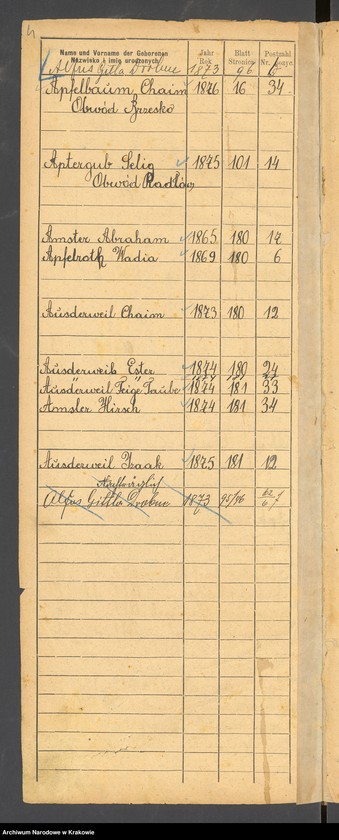 4
Name und Vorname der Geborenen Jahr Blatt Postzahl
Nazwisko i imię urodzonych Rok Stronica Nr. pozyc.
Alfus Gitla Drobne 1873 96 6
Apfelbaum Chaim 1876 16 34
Obwód Brzesko
Aptergub Selig 1875 101 14
Obwód Radłów
Amster Abraham 1865 180 17
Apfelroth Wadia 1869 180 6
Ausderweil Chaim 1873 180 12
Ausderweib Ester 1874 180 24
Ausderweil Feige Taube 1874 181 33
Amsler Hirsch 1874 181 34
Ausderweil Izaak 1875 181 12
Nachträglich
Alfus Gittla Drobne 1873 95/96
Archiwum Narodowe w Krakowie